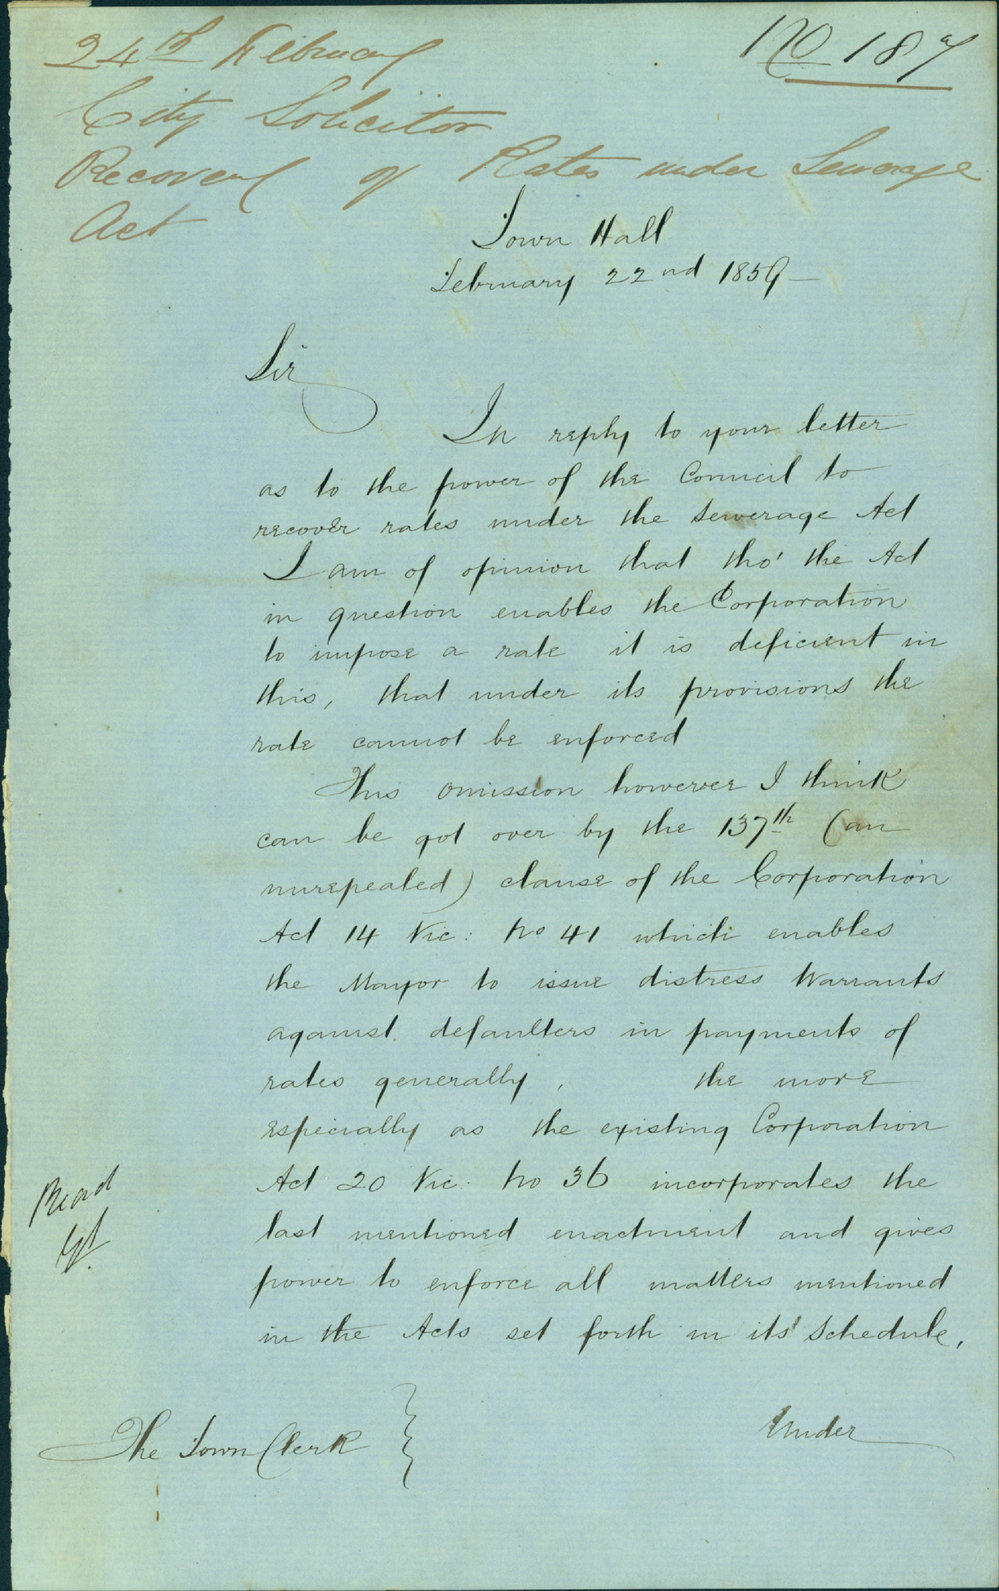 24th February
No 187
City Solicitor
Recovery of Rates under Sewerage
Act
Town Hall
February 22nd 1859
Sir
In reply to your letter
as to the power of the Council to
recover rates under the Sewerage Act
I am of opinion that tho' the Act
in question enables the Corporation
to impose a rate it is deficient in
this, that under its provisions the
rate cannot be enforced
This omission however I think
can be got over by the 137th (an
unrepealed) clause of the Corporation
Act 14 Vic: No 41 which enables
the Mayor to issue distress Warrants
against defaulters in payments of
rates generally, the more
especially as the existing Corporation
Act 20 Vic: No 36 incorporates the
last mentioned enactment and gives
power to enforce all matters mentioned
in the Acts set forth in its Schedule,
Read
The Town Clerk
Under